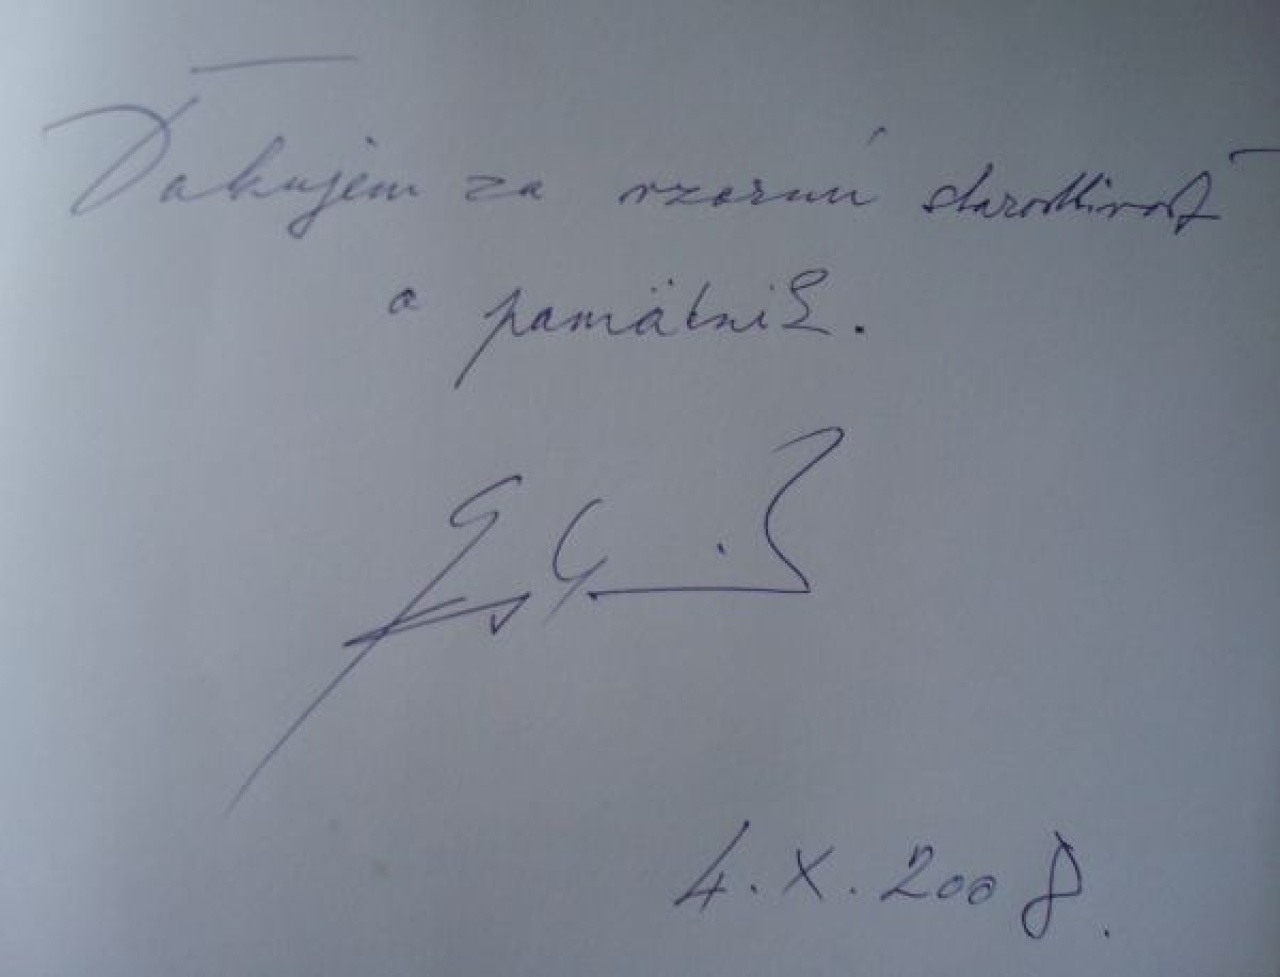 Ďakujem za vzornú starostlivosť
o pamätník.
4. X. 2008.